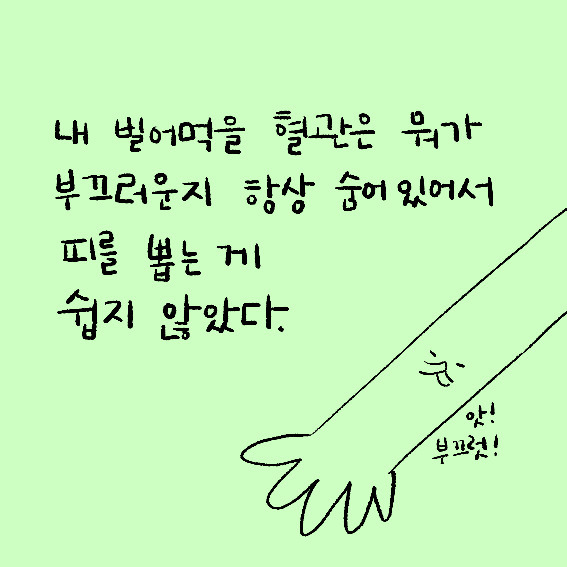 내 빌어먹을 혈관은 뭐가
부끄러운지 항상 숨어있어서
피를 뽑는 게
쉽지 않았다.
앗!
부끄럿!